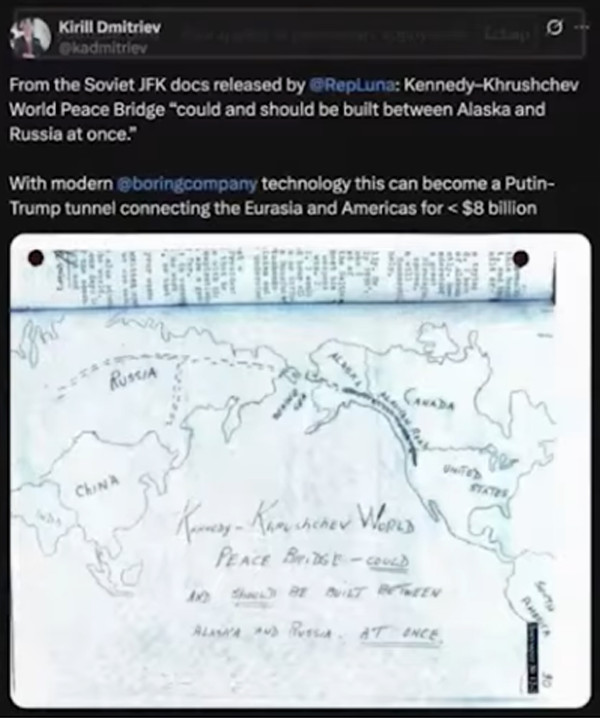 Kirill Dmitriev
@kadmitriev
From the Soviet JFK docs released by @RepLuna: Kennedy–Khrushchev
World Peace Bridge “could and should be built between Alaska and
Russia at once.”
With modern @boringcompany technology this can become a Putin-
Trump tunnel connecting the Eurasia and Americas for < $8 billion
RUSSIA
ALASKA
CANADA
CHINA
UNITED
STATES
KENNEDY - KHRUSHCHEV WORLD
PEACE BRIDGE - COULD
AND SHOULD BE BUILT BETWEEN
ALASKA AND RUSSIA. AT ONCE.
SOUTH
AMERICA